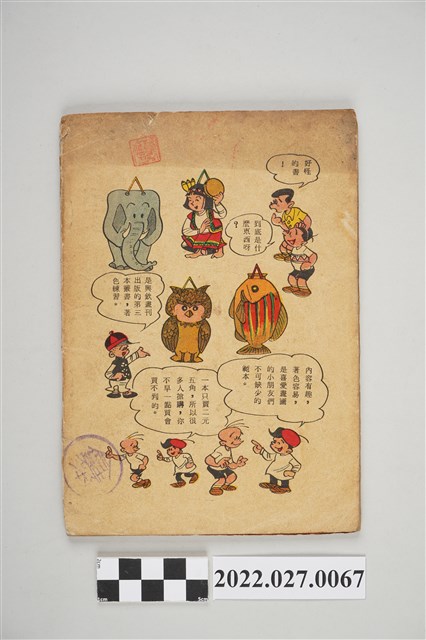 好怪
的書
！
到底是什
麼東西呀
？
是興欽畫刊
出版的第三
本叢書，著
色練習。
內容有趣，
著色容易，
是喜愛漫圖
的小朋友們
不可缺少的
範本。
一本只賣二元
五角，所以很
多人搶購，你
不早一點買會
買不到的。
2cm
1cm
5cm
2022.027.0067